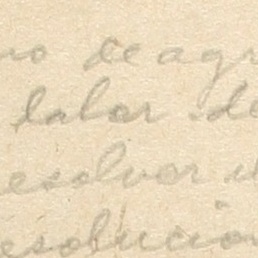 no de agr
labor de
esolver u
esolución